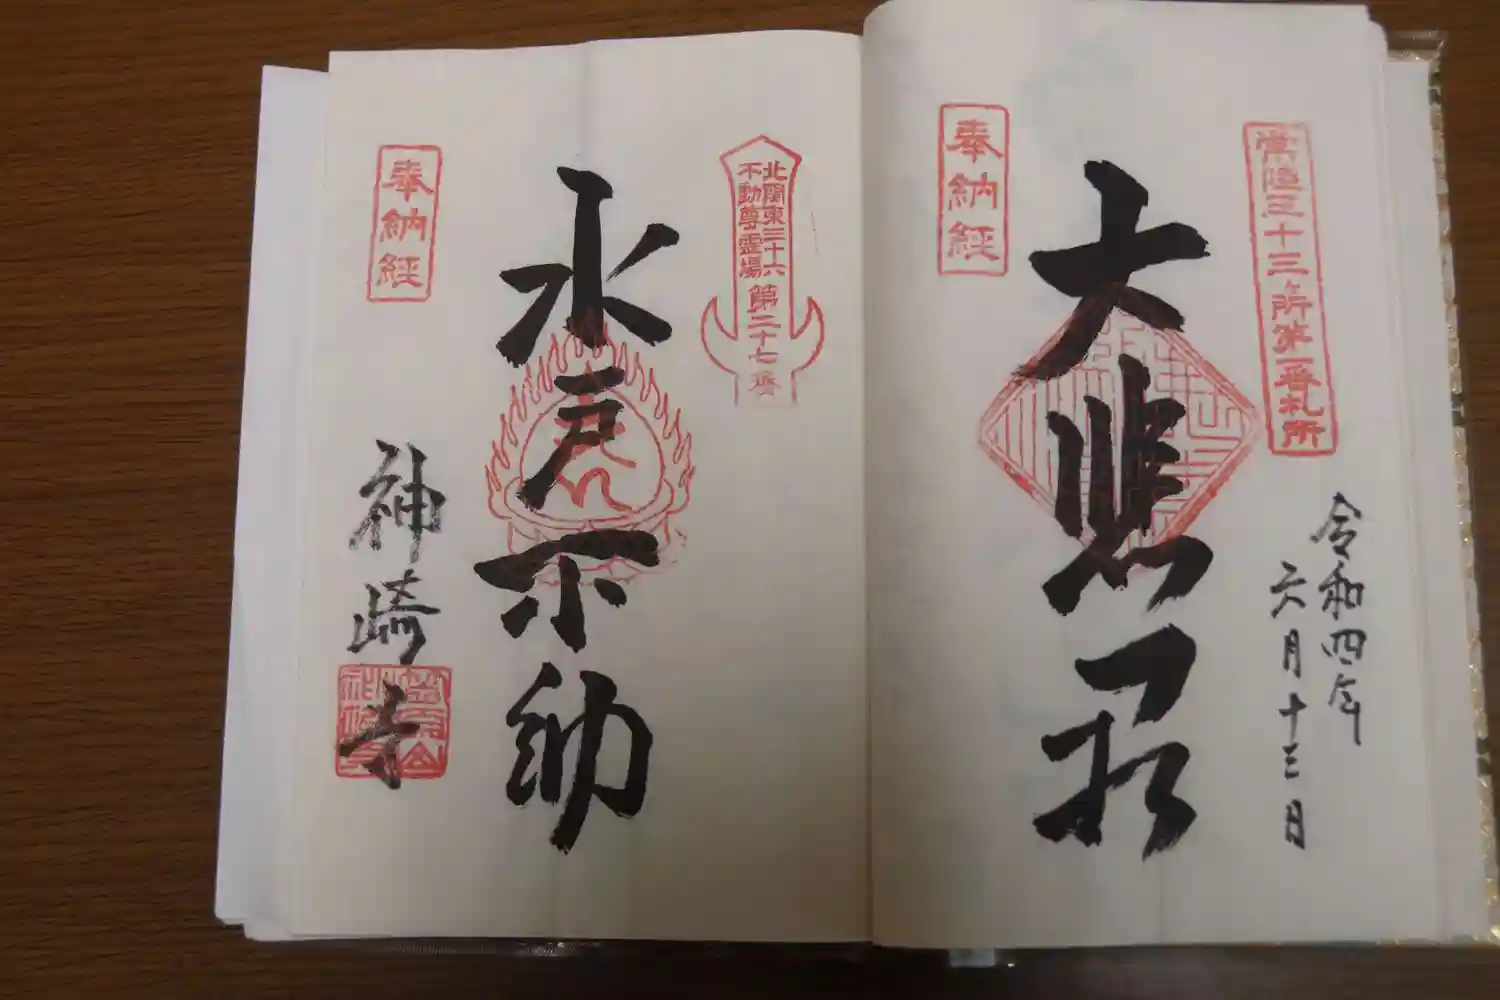 常陸三十三ヶ所第一番札所
令和四年
六月十三日
大悲殿
奉納経
北関東三十六
不動尊霊場
第二十七番
水戸不動
奉納経
神崎寺